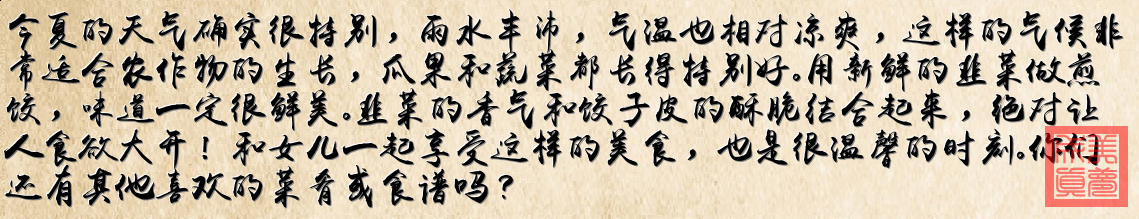 今夏的天气确实很特别，雨水丰沛，气温也相对凉爽，这样的气候非
常适合农作物的生长，瓜果和蔬菜都长得特别好。用新鲜的韭菜做煎
饺，味道一定很鲜美。韭菜的香气和饺子皮的酥脆结合起来，绝对让
人食欲大开！和女儿一起享受这样的美食，也是很温馨的时刻。你们
还有其他喜欢的菜肴或食谱吗？